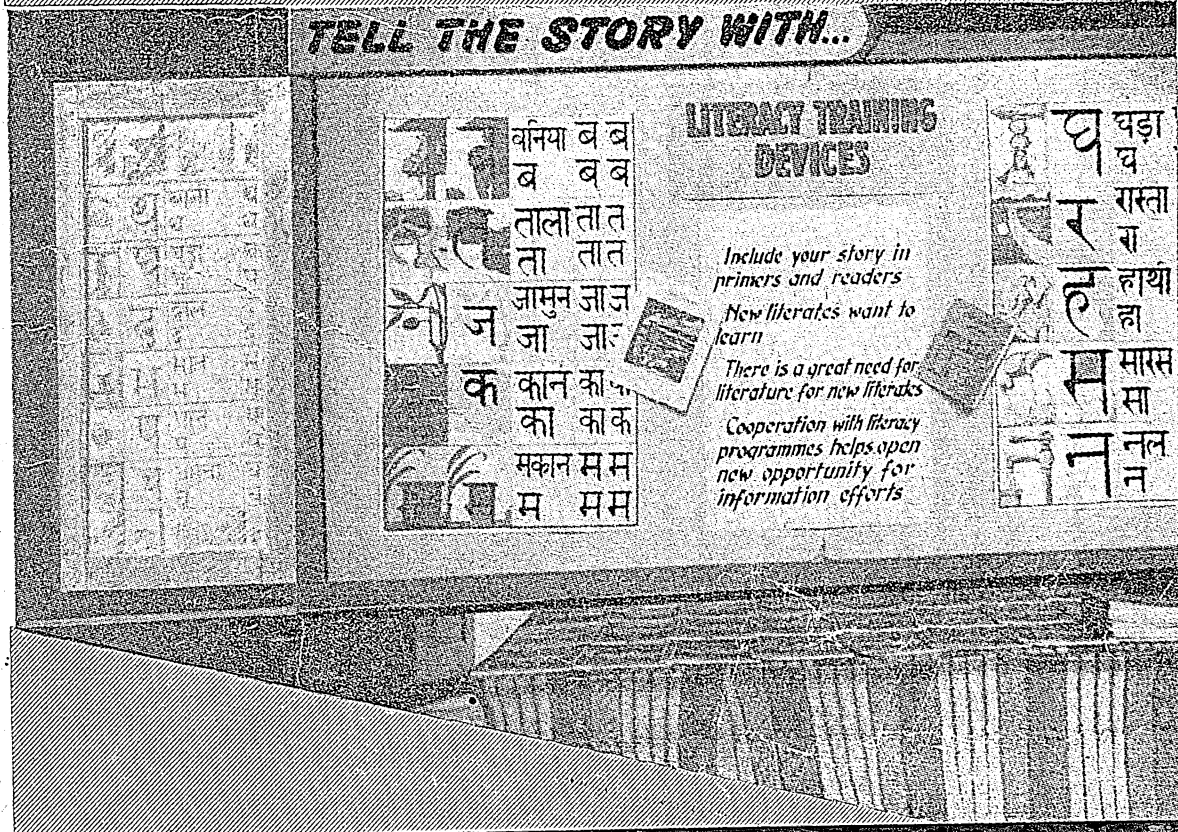 TELL THE STORY WITH...
बनिया ब ब
ब ब ब
ताला ता त
ता ता त
ज
जामुन जा ज
जा जा
क
कान का
का का क
मकान म म
म म म
LITERACY TRAINING
DEVICES
Include your story in
primers and readers
New literates want to
learn
There is a great need for
literature for new literates
Cooperation with literacy
programmes helps open
new opportunity for
information efforts
घ
घड़ा
घ
र
रास्ता
रा
ह
हाथी
हा
स
सारस
सा
न
नल
न